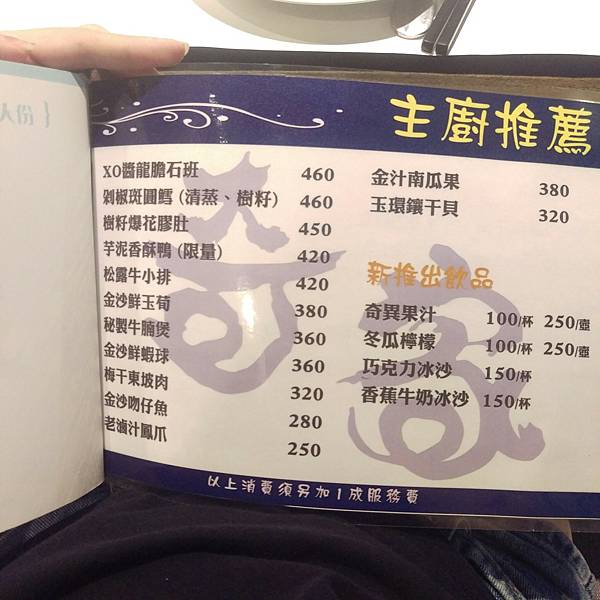 人份 }
主廚推薦
XO醬龍膽石班 460
剁椒斑圓鱈 (清蒸、樹籽) 460
樹籽爆花膠肚 450
芋泥香酥鴨 (限量) 420
松露牛小排 420
金沙鮮玉荀 380
秘製牛腩煲 360
金沙鮮蝦球 360
梅干東坡肉 320
金沙吻仔魚 280
老滷汁鳳爪 250
金汁南瓜果 380
玉環鑲干貝 320
新推出飲品
奇異果汁 100/杯 250/壺
冬瓜檸檬 100/杯 250/壺
巧克力冰沙 150/杯
香蕉牛奶冰沙 150/杯
以上消費須另加1成服務費